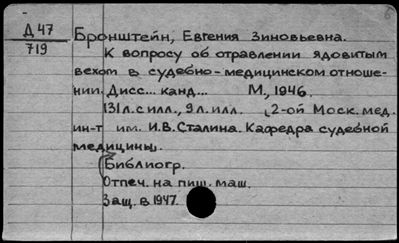 Д 47
719
Бронштейн, Евгения Зиновьевна.
К вопросу об отравлении ядовитым
вехом в судебно-медицинском отноше-
нии. Дисс... канд... М., 1946.
131 л. с илл., 9 л. илл. (2-ой Моск. мед.
ин-т им. И.В. Сталина. Кафедра судебной
медицины.
Библиогр.
Отпеч. на пиш. маш.
Защ. в 1947.